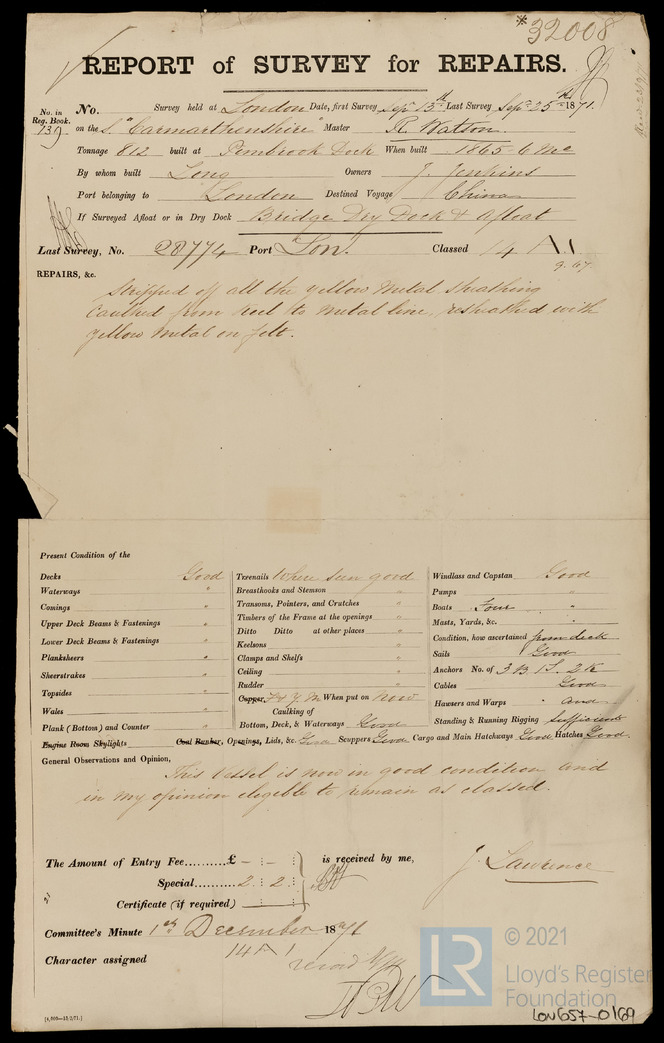 *32008
REPORT of SURVEY for REPAIRS.
No. in Reg. Book. No. Survey held at London Date, first Survey Sepr 13th Last Survey Sepr 25th 1871.
739 on the S. "Carmarthenshire" Master R. Watson
Tonnage 812 built at Pembrook Dock When built 1865 6 Mo
By whom built Long Owners J. Jenkins
Port belonging to London Destined Voyage China
If Surveyed Afloat or in Dry Dock Bridge Dry Dock & Afloat
Last Survey, No. 28774 Port Lon. Classed 14 A.1
9.67
REPAIRS, &c.
Stripped off all the yellow Metal Sheathing
Caulked from keel to metal line, resheathed with
yellow Metal on felt.
Present Condition of the
Decks Good Treenails Where seen good Windlass and Capstan Good
Waterways " Breasthooks and Stemson " Pumps "
Comings " Transoms, Pointers, and Crutches " Boats Four "
Upper Deck Beams & Fastenings " Timbers of the Frame at the openings " Masts, Yards, &c. "
Lower Deck Beams & Fastenings " Ditto Ditto at other places " Condition, how ascertained from deck
Planksheers " Keelsons " Sails Good
Sheerstrakes " Clamps and Shelfs " Anchors No. of 3 B 1 S. 2 K
Topsides " Ceiling " Cables Good
Wales " Rudder " Hawsers and Warps and
Plank (Bottom) and Counter " Copper, F & Y M When put on Now Standing & Running Rigging Sufficient
Caulking of
Bottom, Deck, & Waterways Good
Engine Room Skylights Coal Bunker, Openings, Lids, &c. Good Scuppers Good Cargo and Main Hatchways Good Hatches Good.
General Observations and Opinion,
This Vessel is now in good condition and
in my opinion eligible to remain as classed.
The Amount of Entry Fee..........£ - : - : is received by me,
Special..........2 : 2 :
Certificate (if required)
J. Lawrence
Committee's Minute 1st December 1871
Character assigned 14 A 1
[4,800—15/2/71.]
LR
© 2021
Lloyd's Register
Foundation
LON657-0169